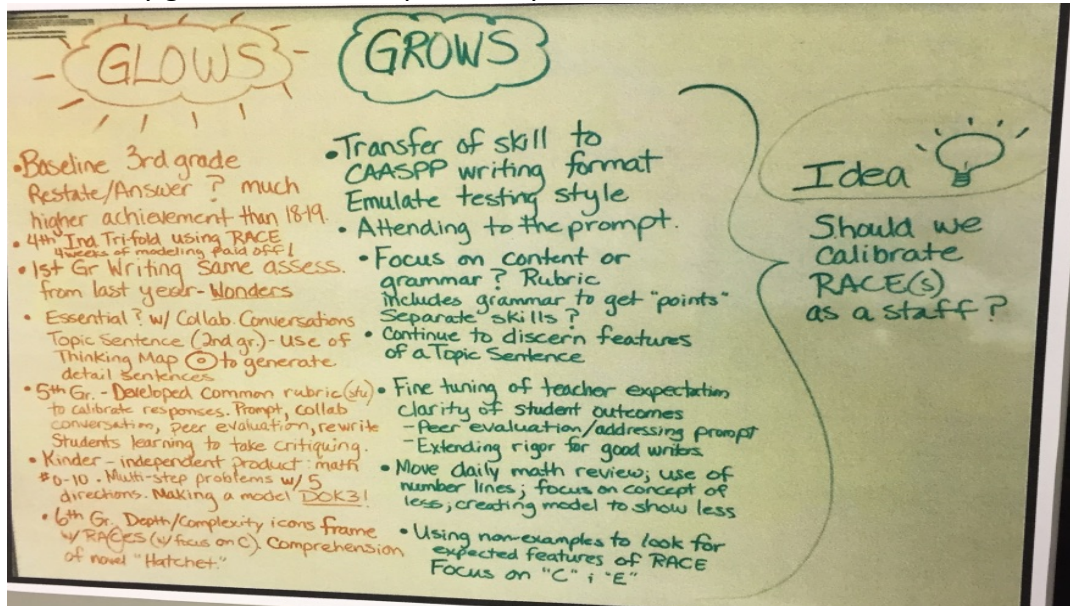 GLOWS
• Baseline 3rd grade
Restate/Answer ? much
higher achievement than 18-19.
• 4th Ind Trifold using RACE
4 weeks of modeling paid off!
• 1st Gr Writing same assess.
from last year - Wonders
• Essential ? w/ Collab. Conversations
Topic Sentence (2nd gr.) - Use of
Thinking Map to generate
detail sentences
• 5th Gr. - Developed common rubric (stu)
to calibrate responses. Prompt, collab
conversation, peer evaluation, rewrite
Students learning to take critiquing.
• Kinder - independent product: math
#0-10. Multi-step problems w/ 5
directions. Making a model DOK3!
• 6th Gr. Depth/Complexity icons frame
w/ RACES (w/ focus on C). Comprehension
of novel "Hatchet."
GROWS
• Transfer of skill to
CAASPP writing format
Emulate testing style
• Attending to the prompt.
• Focus on content or
grammar? Rubric
includes grammar to get "points"
Separate skills?
• Continue to discern features
of a Topic Sentence
• Fine tuning of teacher expectation
clarity of student outcomes
- Peer evaluation/addressing prompt
- Extending rigor for good writers.
• Move daily math review; use of
number lines; focus on concept of
less; creating model to show less
• Using non-examples to look for
expected features of RACE
Focus on "C" & "E"
Idea
Should we
calibrate
RACE(s)
as a staff?